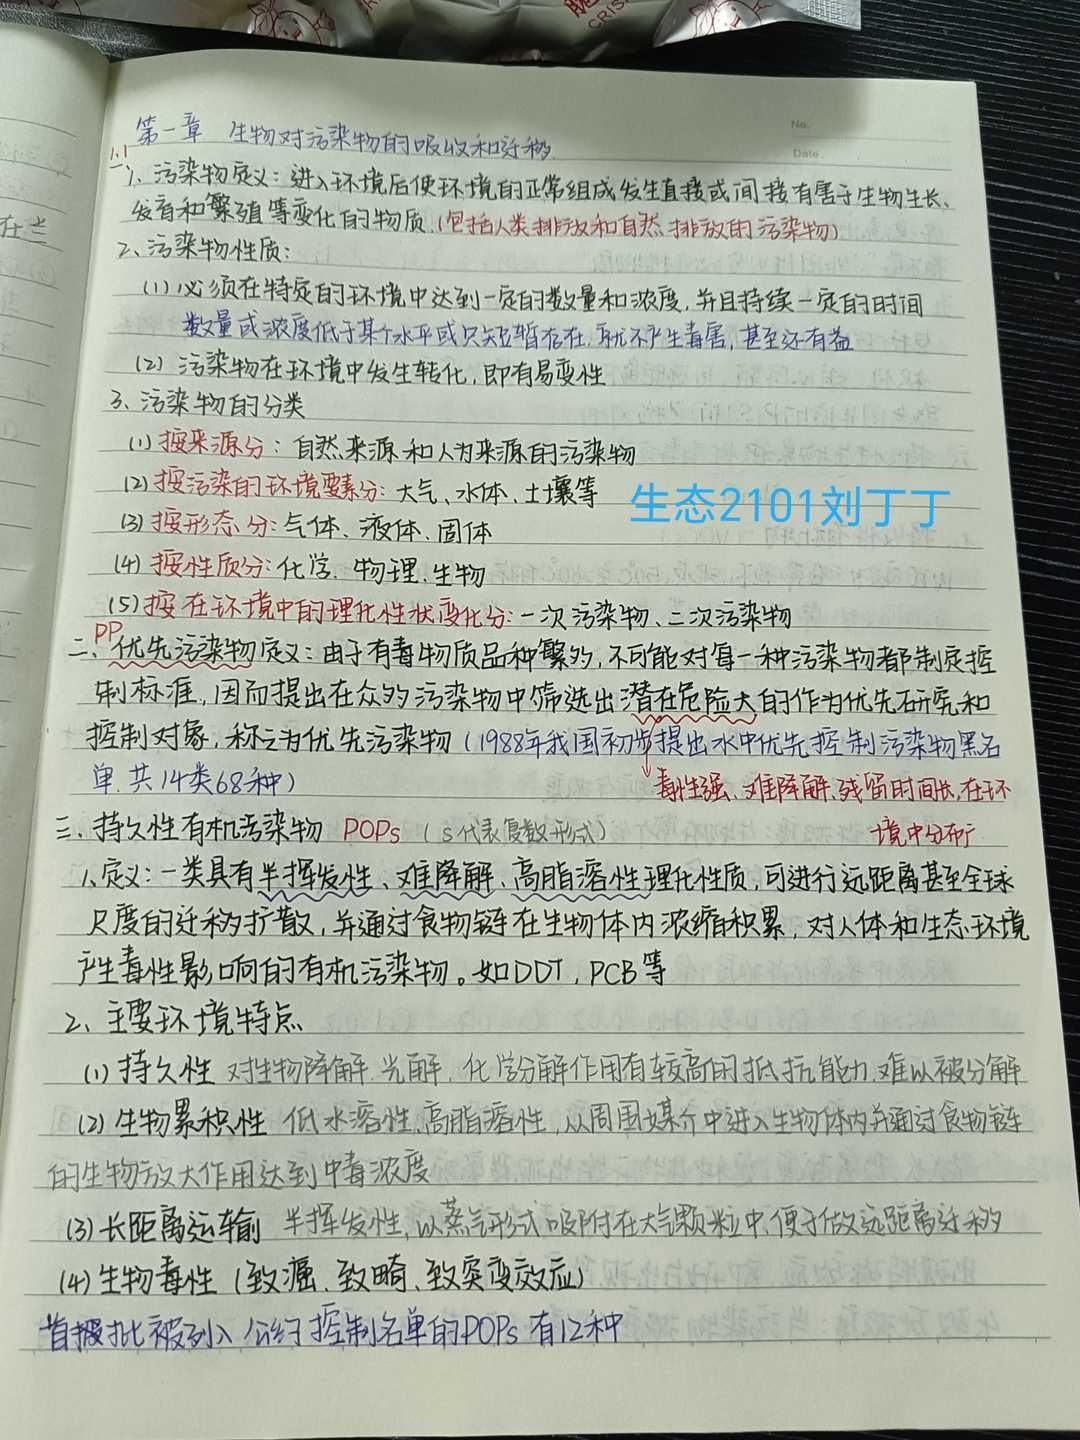 No.
Date.
第一章 生物对污染物的吸收和迁移
1.1
一、1、污染物定义：进入环境后使环境的正常组成发生直接或间接有害于生物生长、
发育和繁殖等变化的物质.(包括人类排放和自然排放的污染物)
2、污染物性质：
(1) 必须在特定的环境中达到一定的数量和浓度，并且持续一定的时间
数量或浓度低于某个水平或只短暂存在，就不产生毒害，甚至还有益
(2) 污染物在环境中发生转化，即有易变性
3、污染物的分类
(1) 按来源分：自然来源和人为来源的污染物
(2) 按污染的环境要素分：大气、水体、土壤等
生态2101刘丁丁
(3) 按形态分：气体、液体、固体
(4) 按性质分：化学、物理、生物
(5) 按在环境中的理化性状变化分：一次污染物、二次污染物
PP
二、优先污染物定义：由于有毒物质品种繁多，不可能对每一种污染物都制定控
制标准，因而提出在众多污染物中筛选出潜在危险大的作为优先研究和
控制对象，称之为优先污染物（1988年我国初步提出水中优先控制污染物黑名
单.共14类68种）
毒性强、难降解、残留时间长，在环
境中分布广
三、持久性有机污染物 POPs （s代表复数形式）
1、定义：一类具有半挥发性、难降解、高脂溶性理化性质，可进行远距离甚至全球
尺度的迁移扩散，并通过食物链在生物体内浓缩积累，对人体和生态环境
产生毒性影响的有机污染物。如DDT，PCB等
2、主要环境特点
(1) 持久性 对生物降解.光解.化学分解作用有较高的抵抗能力.难以被分解
(2) 生物累积性 低水溶性，高脂溶性，从周围媒介中进入生物体内并通过食物链
的生物放大作用达到中毒浓度
(3) 长距离运输 半挥发性，以蒸气形式吸附在大气颗粒中，便于做远距离迁移
(4) 生物毒性（致癌、致畸、致突变效应）
首批被列入公约控制名单的POPs有12种